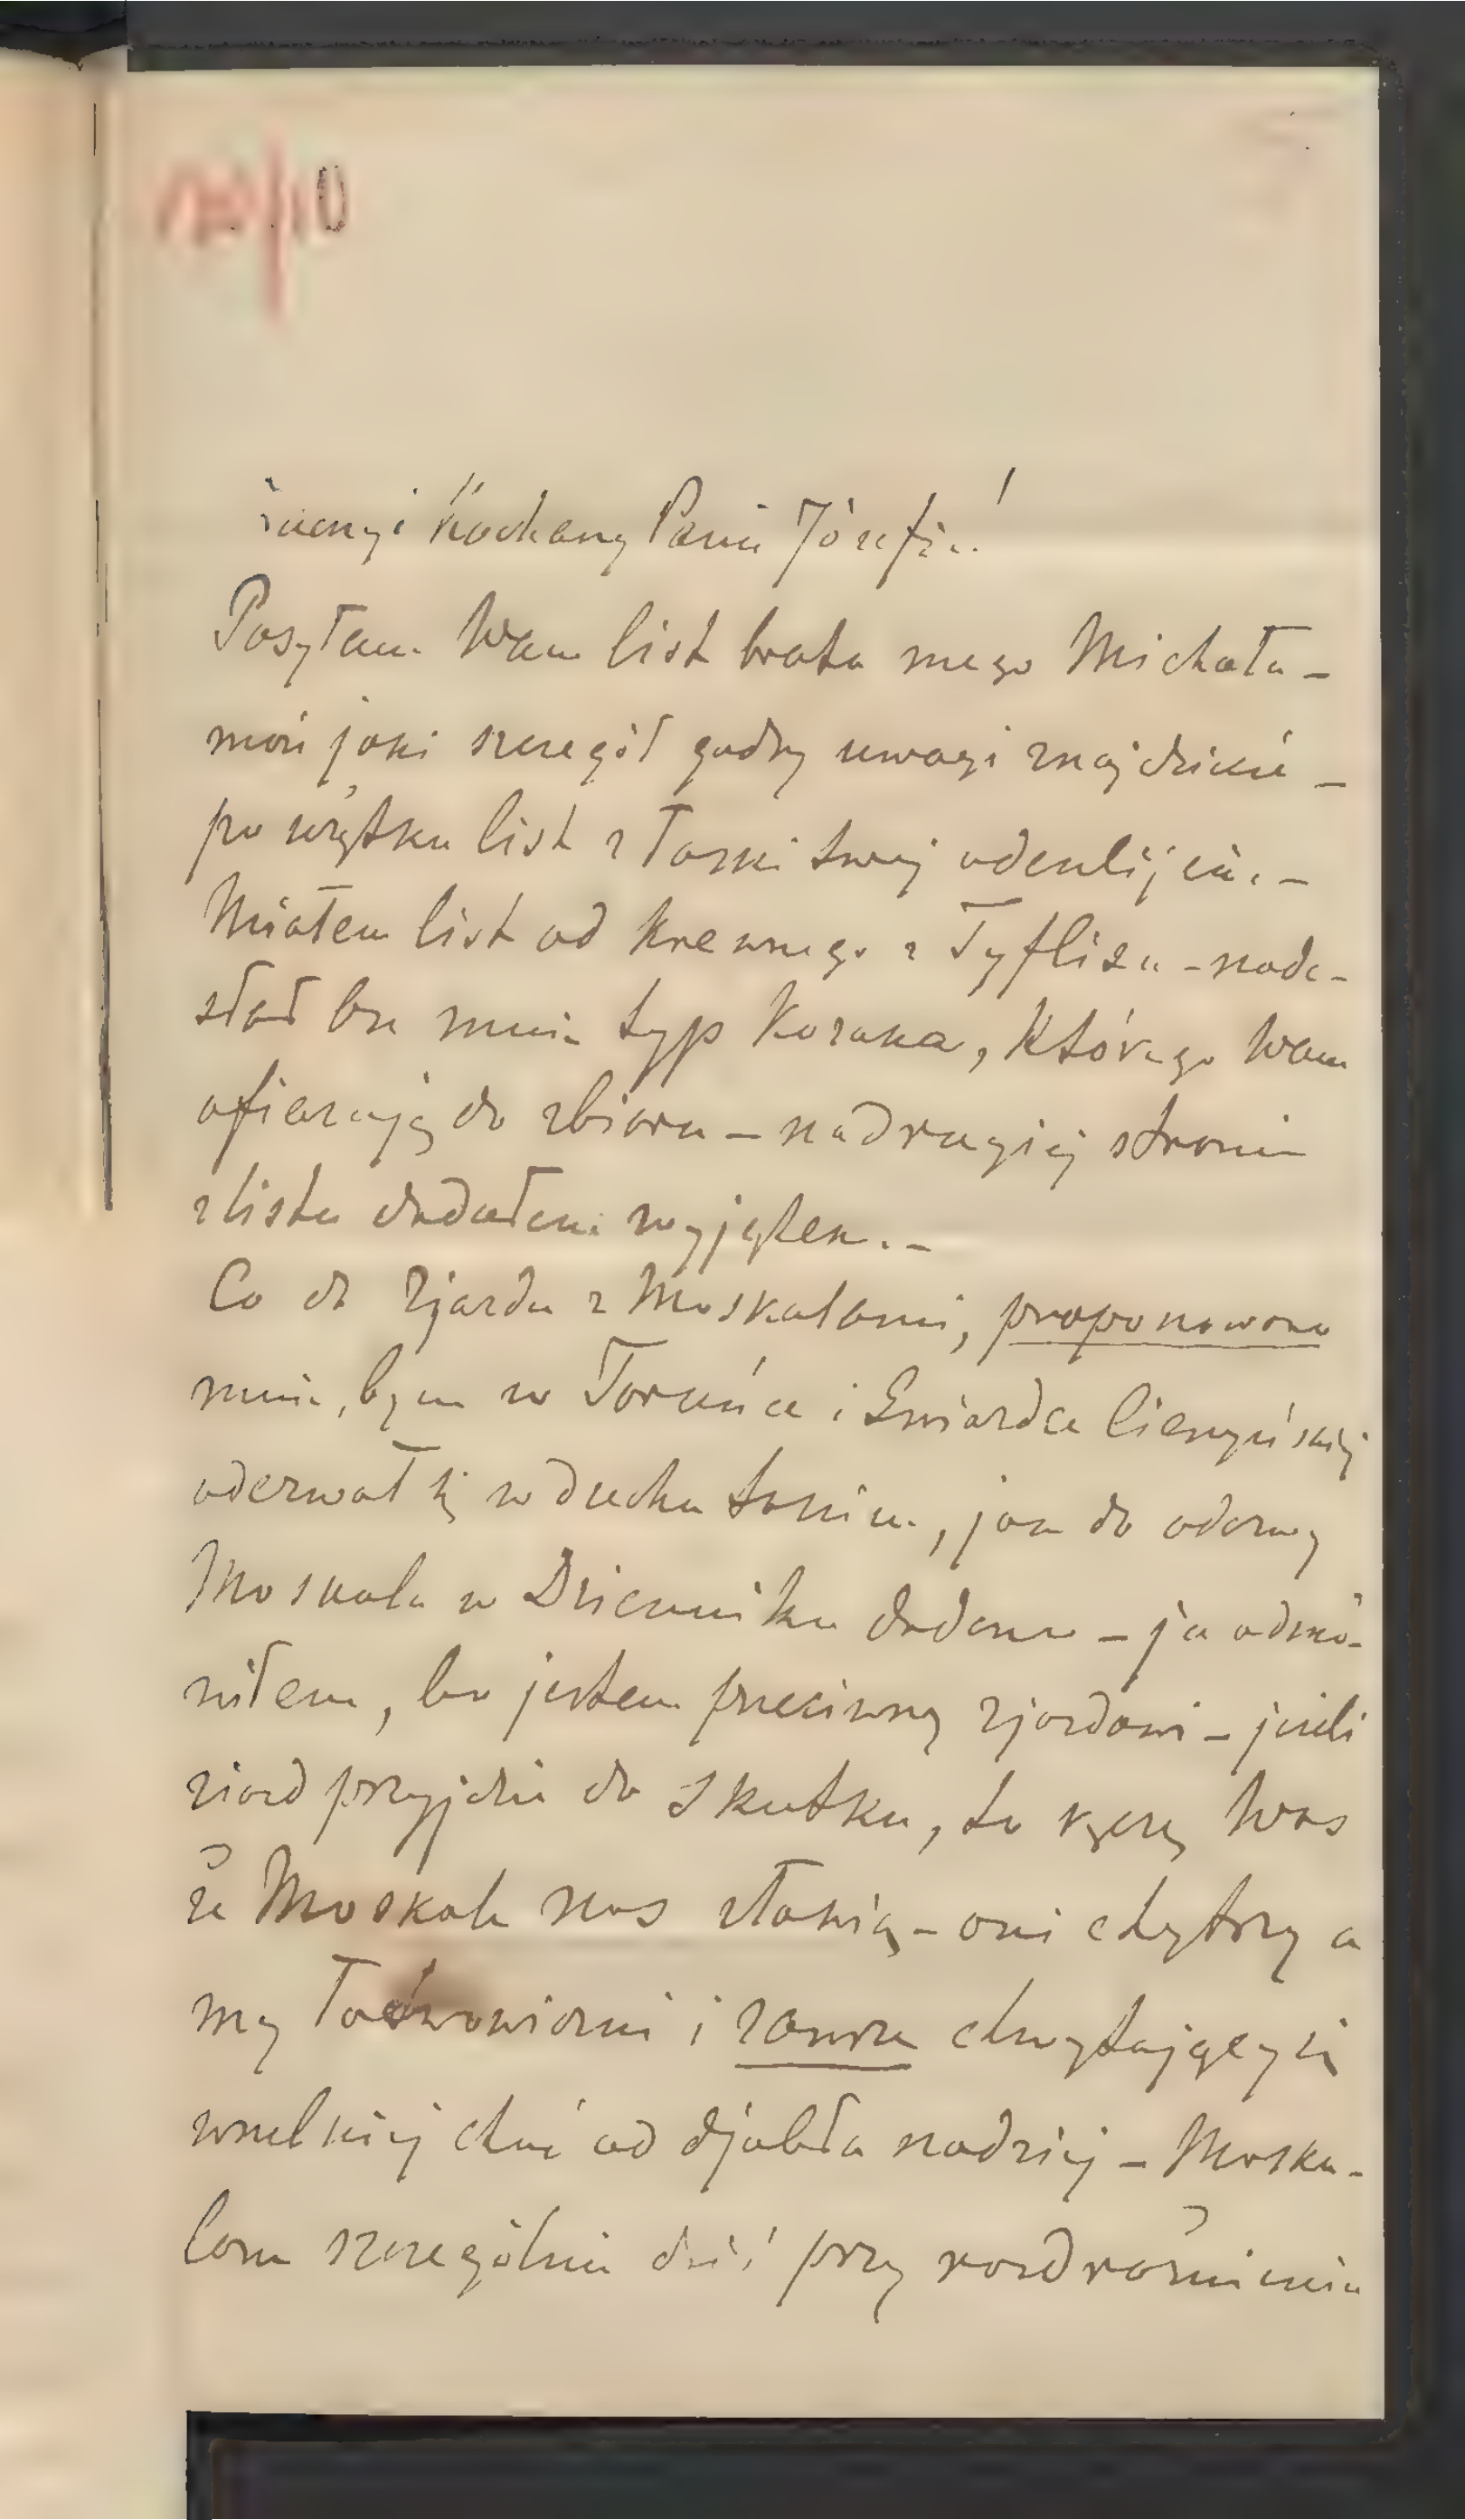 i Kochany Panie Józefie!
Posyłam Wam list brata mego Michała –
może jaki szczegół godny uwagi znajdziecie –
po użytku list z łaski swej odeślijcie. –
Miałem list od krewnego z Tyflisu – nade-
słał on mnie typ Kozaka, którego Wam
ofiaruję do zbioru – na drugiej stronie
z listu dodałem wyjątek. –
Co do Zjazdu z Moskalami, proponowano
mnie, bym w Toruńce i Gwiazdce Cieszyńskiej
oderwał się w duchu takim, jak do odezwy
Moskala w Dzienniku dodano – ja odmó-
wiłem, bo jestem przeciwny zjazdowi – jeśli
zjazd przyjdzie do skutku, to ręczę Was
że Moskale nas złowią – oni chytrzy a
my łatwowierni i zawsze chwytający się
wszelkiej choć od djabła nadziej – Moska-
lom szczególnie dziś przy rozdrażnieniu